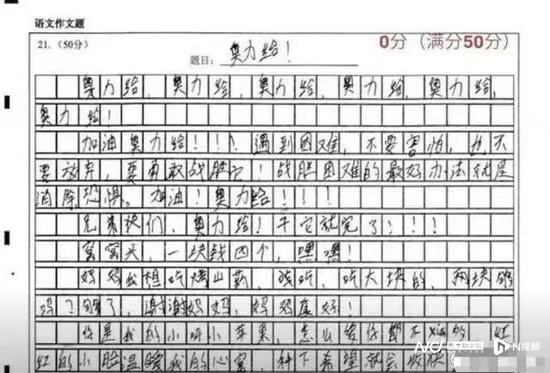 语文作文题
21.（50分）
题目： 奥力给！
0分（满分50分）
奥力给，奥力给，奥力给，奥力给，奥力给，
奥力给！
加油奥力给！！！遇到困难，不要害怕，也不
要放弃，要勇敢战胜它！战胜困难的最好办法就是
消除恐惧，加油！奥力给！！！！
兄弟们，奥力给！干它就完了！！！
窝窝头，一块钱四个，嘿嘿！
妈妈我想吃烤山药，吃，吃大块的，两块够
吗？够了，谢谢妈妈，妈妈真好！
你是我的小呀小苹果，怎么爱你都不嫌多，红
红的小脸温暖我的心窝，种下希望就会收获
N视频